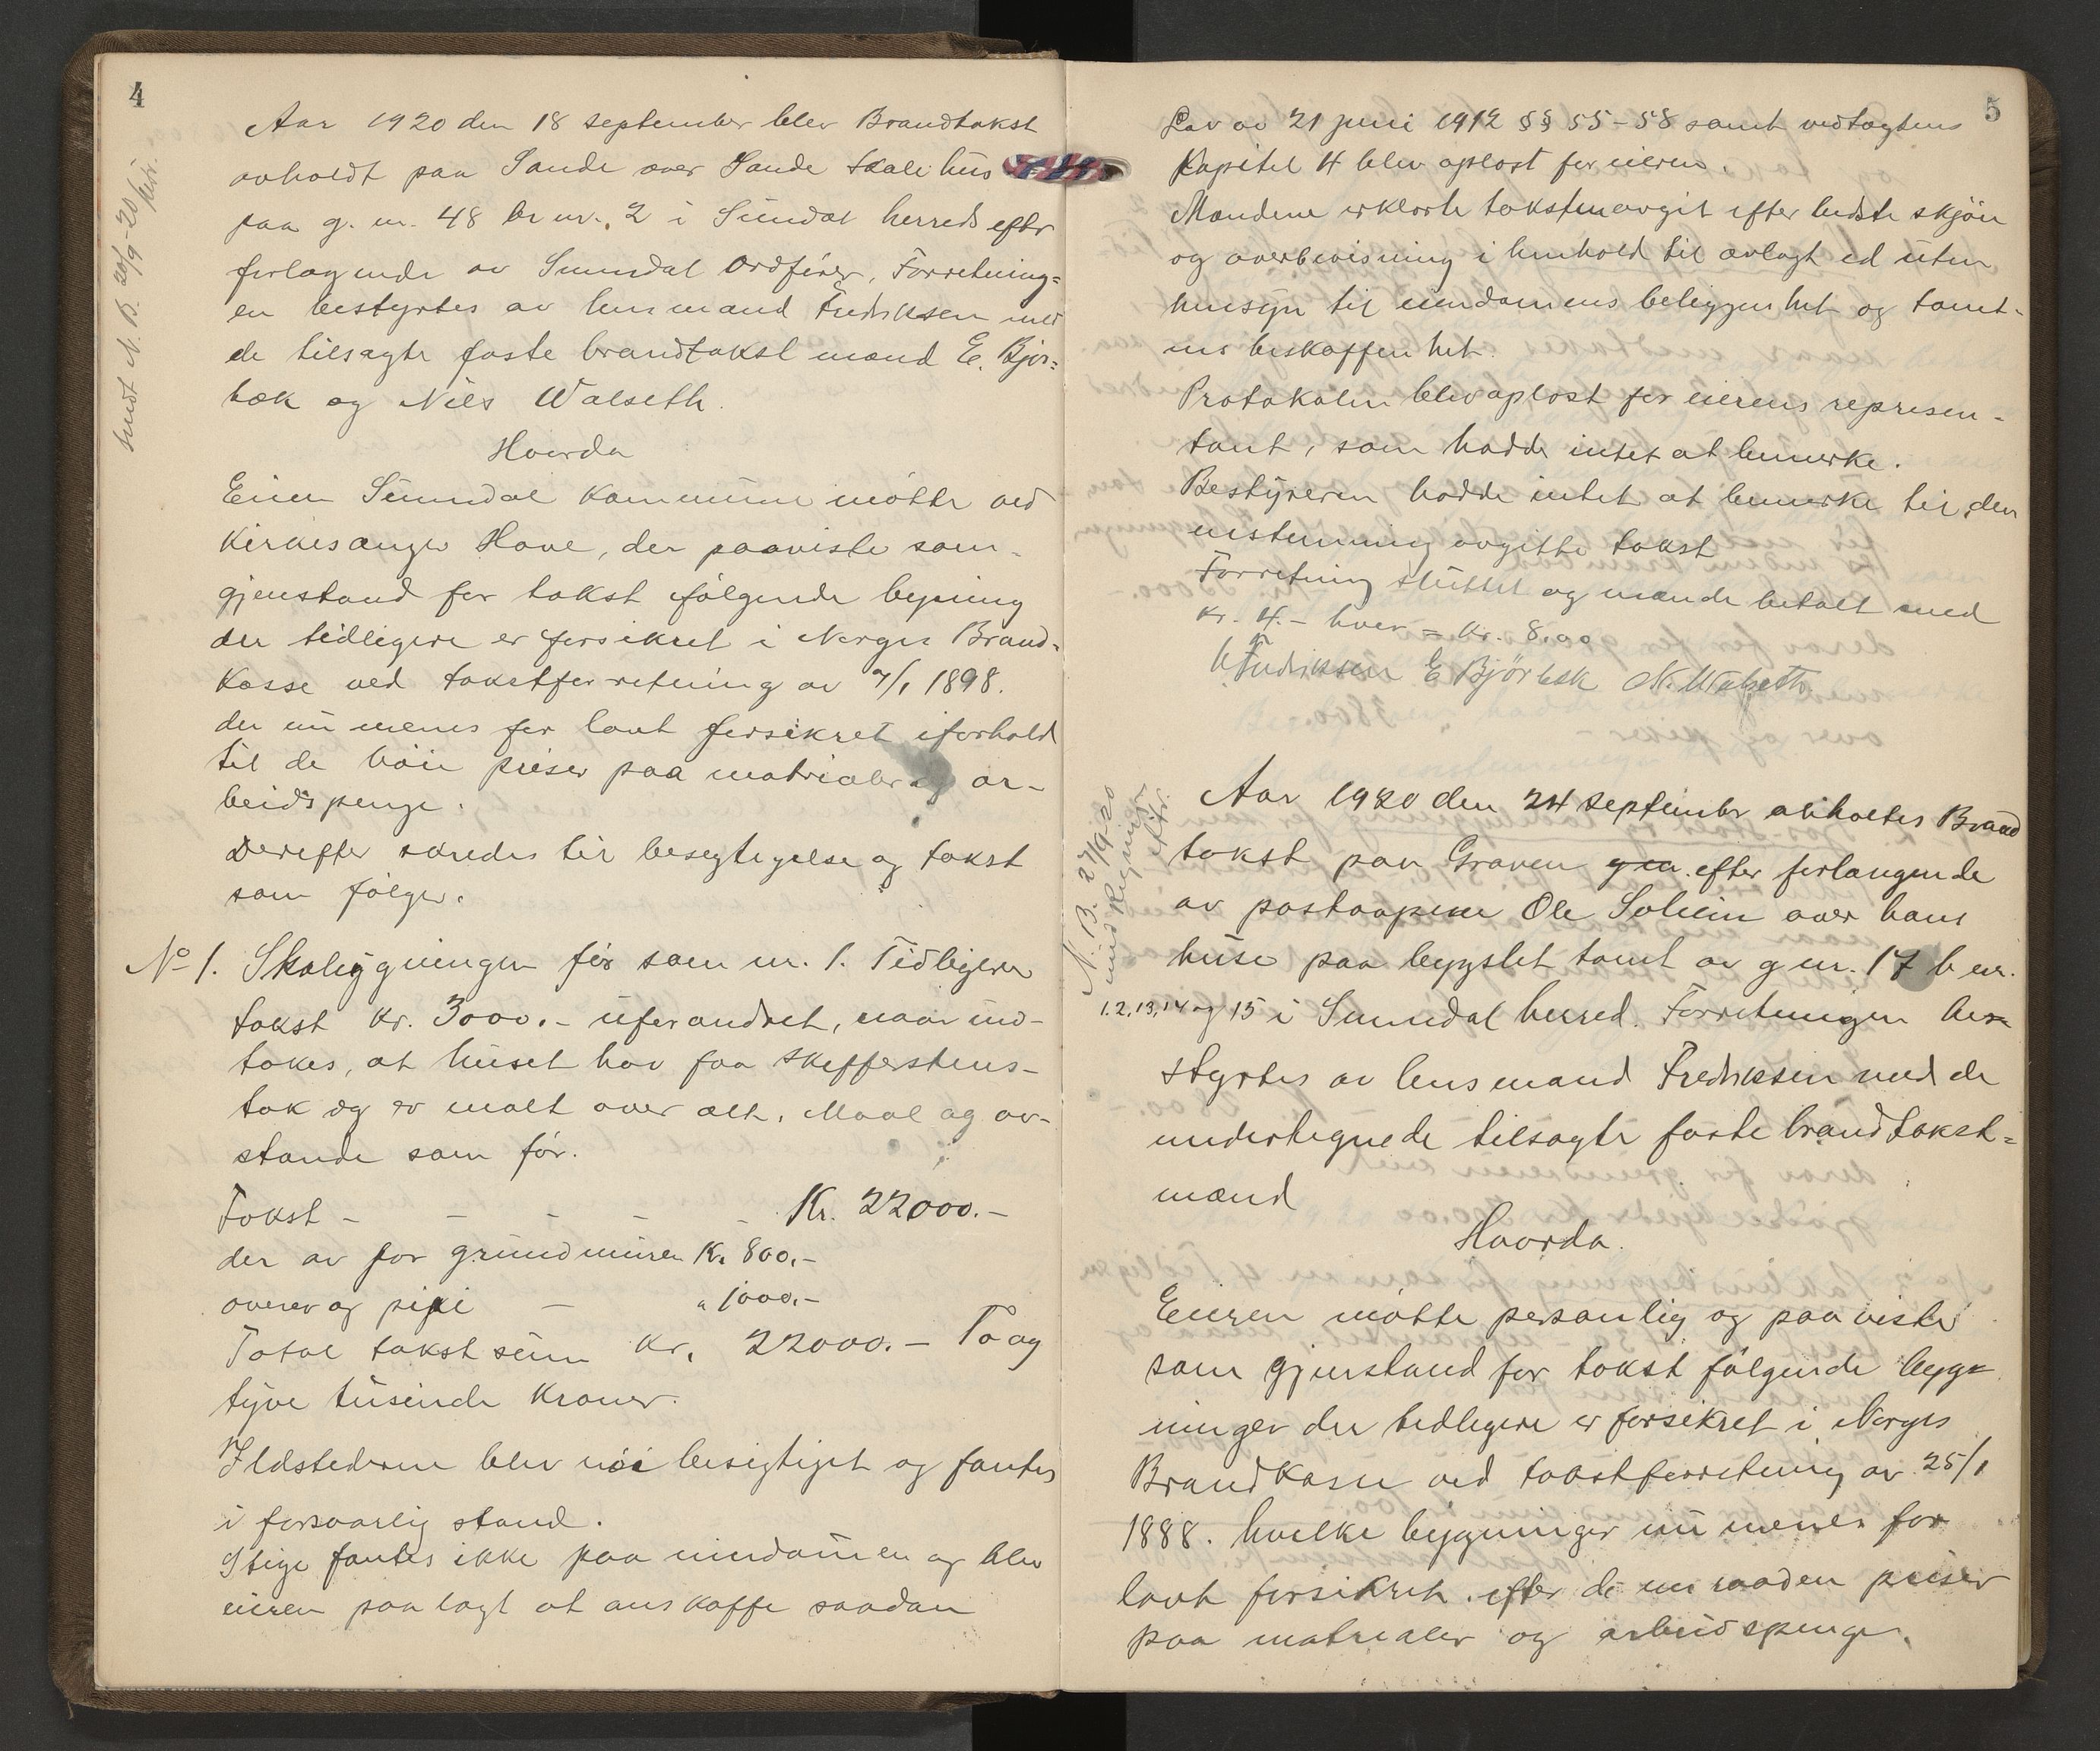 4
sendt N. B. 20/9-20
Aar 1920 den 18 september blev Brandtakst
avholdt paa Sande over Sande skolehus
paa g. nr. 48 br nr. 2 i Sundal herred efter
forlangende av Sunndal Ordfører, Forretning=
en bestyrtes av lensmand Fredriksen med
de tilsagte faste brandtakst mænd E. Bjør=
bæk og Nils Walseth.
Hvorda
Eieren Sunndal Kommune mötte ved
Kirkesanger Hove, der paaviste som
gjenstand for takst fölgende bygning
der tidligere er forsikret i Norges Brand-
kasse ved takstforretning av 7/1 1898.
der nu menes for lavt forsikret iforhold
til de höie priser paa matrialer og ar-
beidspenge.
Derefter skredes til besegtigelse og takst
som fölger.
No 1. Skolebygningen för som nr. 1. Tidligere
takst kr. 3000.- uforandret, naar und-
takes, at huset har faa skifferstens-
tak og er malt over alt. Maal og av-
stande som för.
Takst - - - - - Kr. 22000.-
der av for grundmuren Kr. 800.-
ovner og pipe - " 1000.-
Total takst sum Kr. 22000.- To og
tyve tusinde Kroner.
Ildstederne blev nöie besigtiget og fantes
i forsvarlig stand.
Stige fantes ikke paa eiendommen og blev
eieren paalagt at anskaffe saadan
5
Lov av 21 juni 1912 §§ 55-58 samt vedtægtens
Kapitel 4 blev oplæst for eieren.
Mændene erklærte taksten avgit efter bedste skjön
og overbevisning i henhold til avlagt ed uten
hensyn til eiendomens beliggenhet og tomt-
ens beskaffenhet.
Protokolen blev oplæst for eierens represen-
tant, som hadde intet at bemerke.
Bestyreren hadde intet at bemerke til den
enstemmig avgitte takst
Forretning sluttet og mænde betalt med
kr. 4.- hver = kr. 8.00
Fredriksen E Bjørbæk N. Walseth
N. B. 27/9-20
Aar 1920 den 24 septembr avholtes Brand
takst paa Graven g nr. efter forlangende
av postaapner Ole Solheim over hans
huse paa bygslet tomt av g nr. 17 b nr.
1.2,13,14 og 15 i Sunndal herred. Forretningen be=
styrtes av lensmand Fredriksen med de
undertegnede tilsagte faste brandtakst=
mænd
Hvorda.
Eieren mötte personlig og paaviste
som gjenstand for takst fölgende bygg=
ninger der tidligere er forsikret i Norges
Brandkasse ved takstforretning av 25/1
1888. hvilke bygninger nu menes for
lavt forsikret. efter de nu raaden priser
paa matrialer og arbeidspenge.